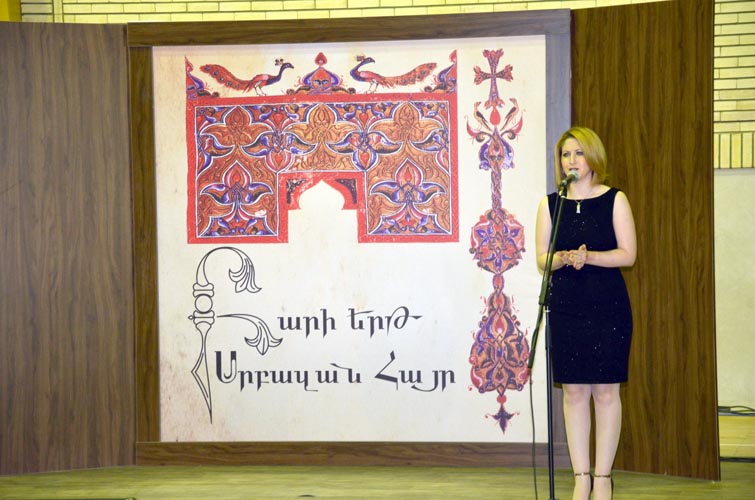 Բարի երթ
Սրբազան Հայր